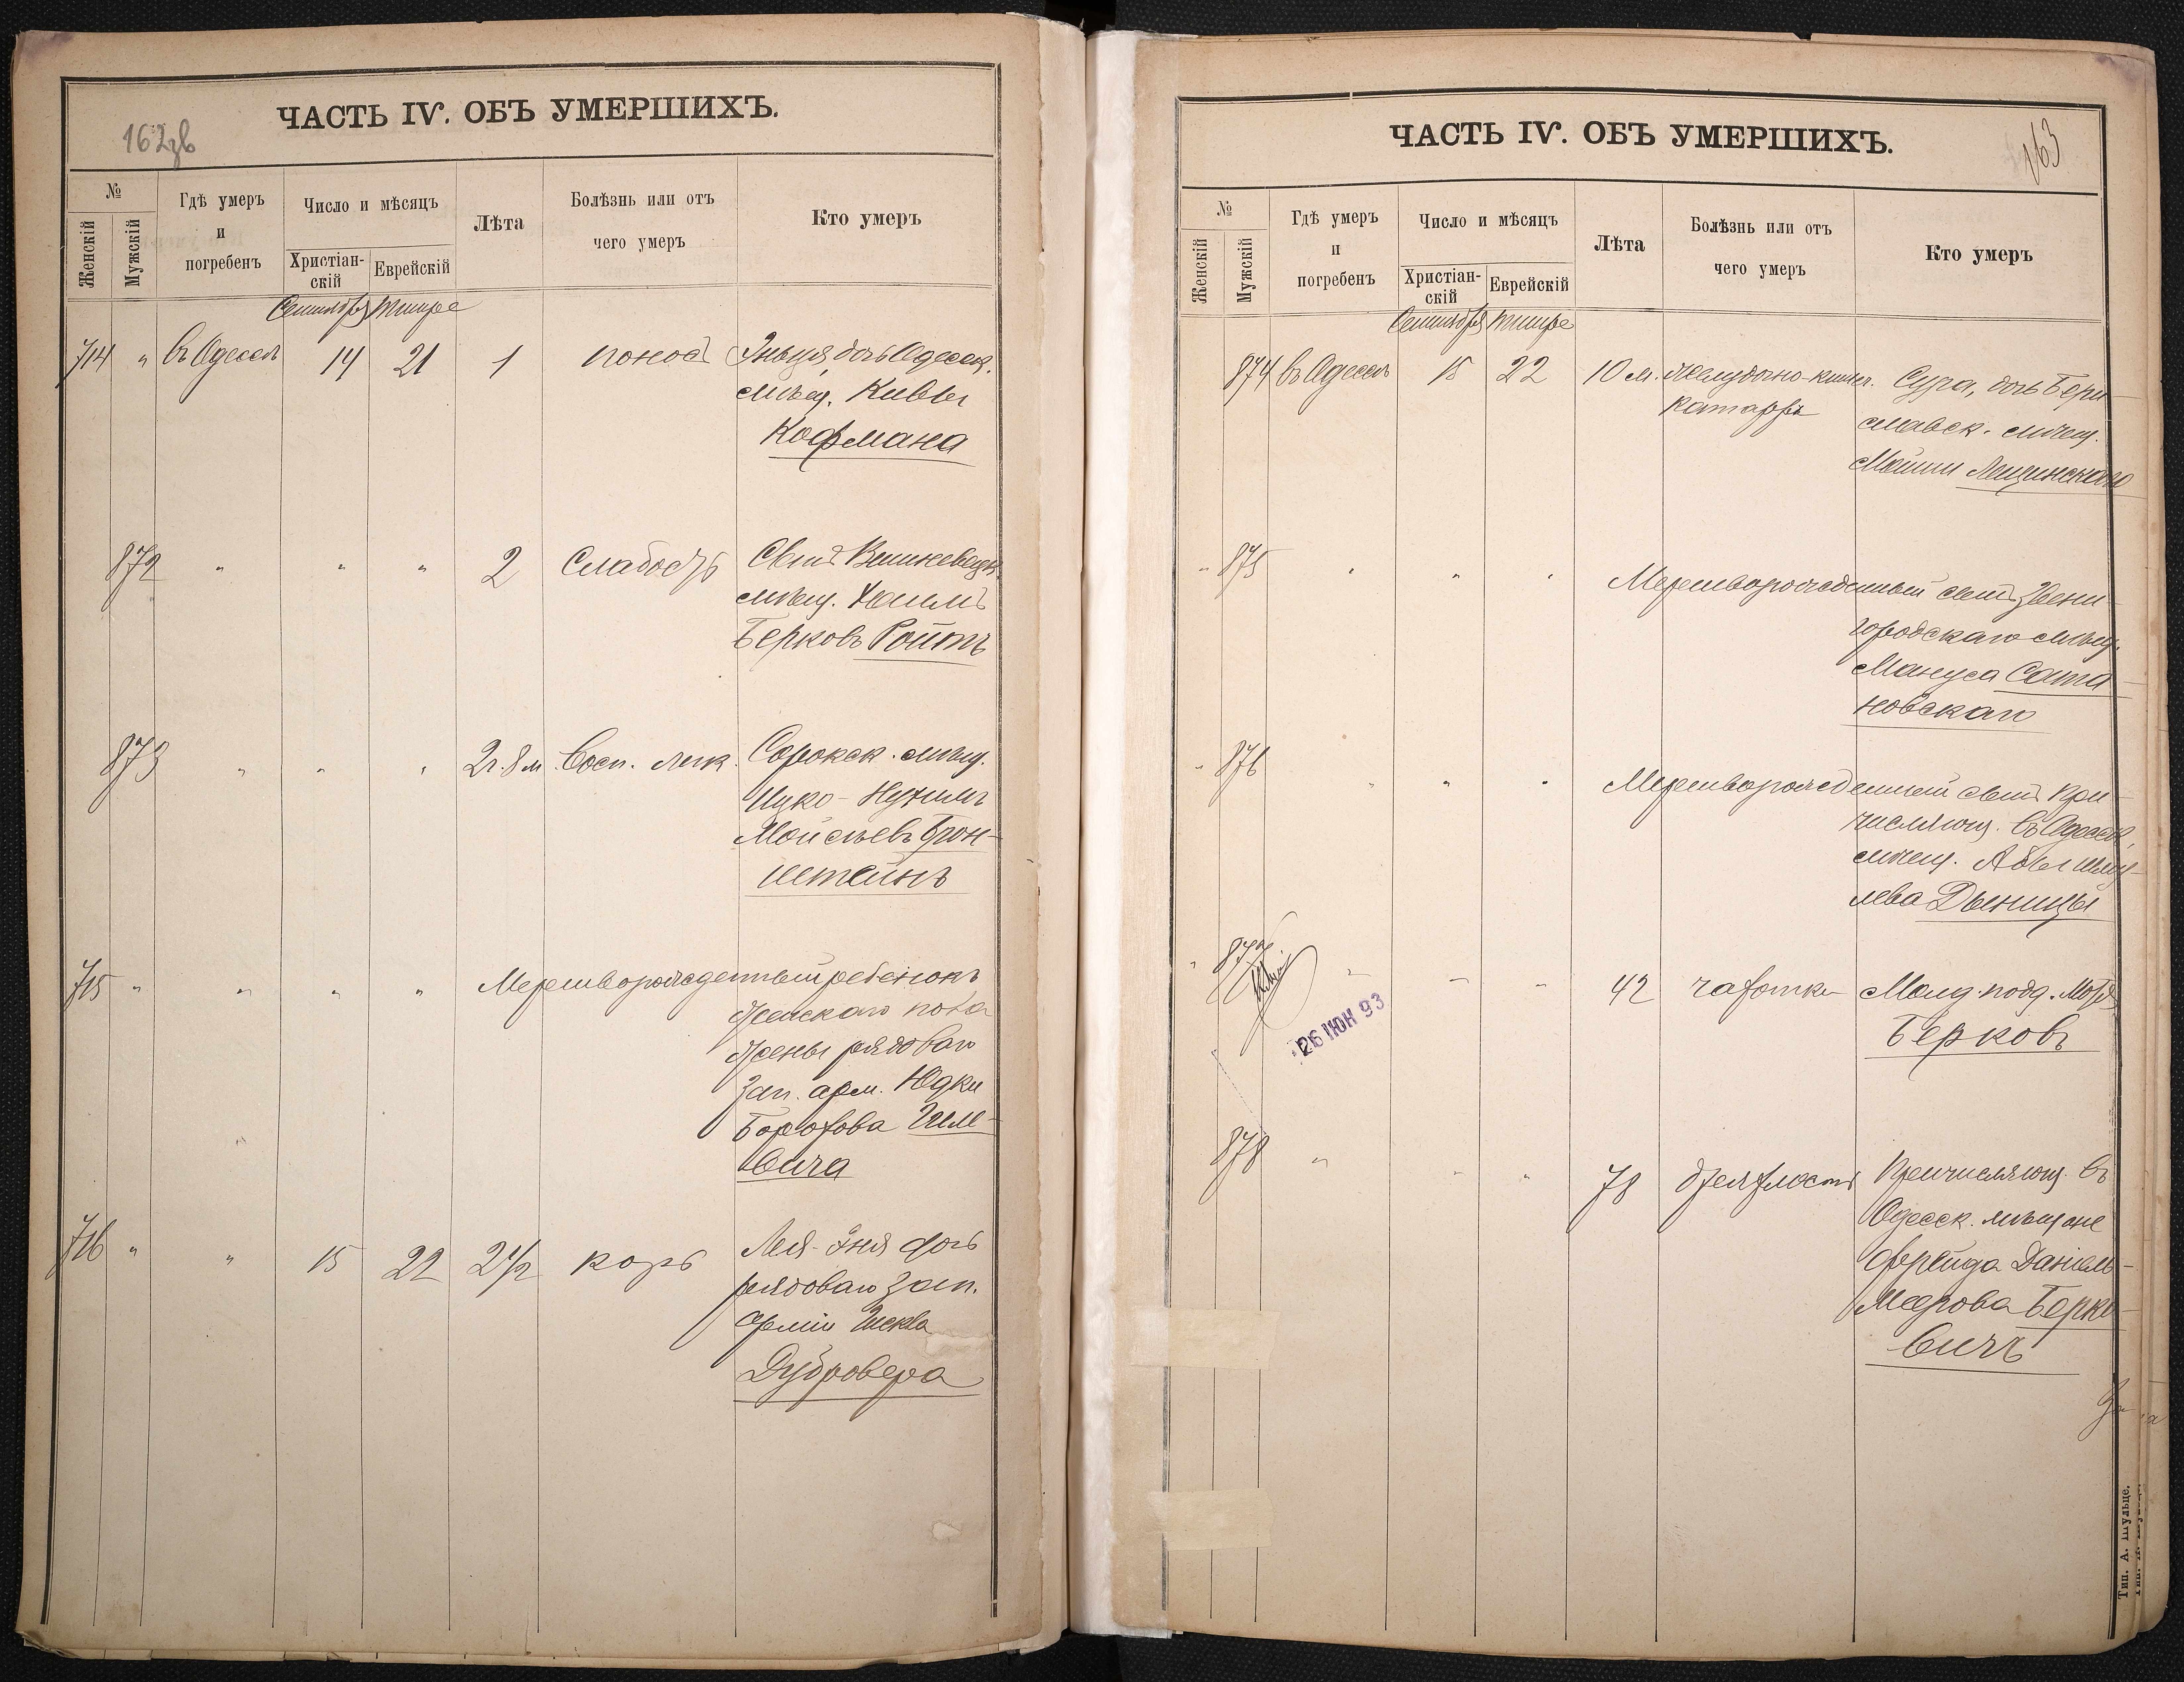 162зв
ЧАСТЬ IV. ОБЪ УМЕРШИХЪ.
№
Женскій
Мужскій
Гдѣ умеръ
и
погребенъ
Число и мѣсяцъ
Христіан-
скій
Еврейскій
Лѣта
Болѣзнь или отъ
чего умеръ
Кто умеръ
Сентября Тишре
714 " въ Одессѣ 14 21 1 поносъ дочь Одесск.
мѣщ. Кивы
Кофмана
872 " " " 2 Слабость Сынъ
мѣщ. Хаимъ
Берковъ Ройтъ
873 " " " 2 г. 8 м. Восп. легк. Сорокск. мѣщ.
Ицко-Нухимъ
Мойсѣевъ Брон-
штейнъ
715 " " " " Мертворожденный ребенокъ
женскаго пола
жены рядоваго
зап. арм. Юдки
Борохова
вича
716 " " 15 22 2 1/2 корь Лея-Эня дочь
рядоваго зап.
арміи
Дубровера
163
ЧАСТЬ IV. ОБЪ УМЕРШИХЪ.
№
Женскій
Мужскій
Гдѣ умеръ
и
погребенъ
Число и мѣсяцъ
Христіан-
скій
Еврейскій
Лѣта
Болѣзнь или отъ
чего умеръ
Кто умеръ
Сентября Тишре
874 въ Одессѣ 15 22 10 м. желудочно-кишеч. Сура, дочь Бери-
катарръ
славск. мѣщ.
Мошки Лещинскаго
" 875 " " " Мертворожденный сынъ Звени-
городскаго мѣщ.
Мануса Сата-
новскаго
" 876 " " Мертворожденный сынъ при-
числяющ. въ Одесск.
мѣщ. Абы Шму-
лева Дыницы
" 877 " " " 42 чахотка Молд. подд.
Берковъ
26 ІЮН 93
878 " " " 78 дряхлость Причисляющ. въ
Одесск. мѣщане
Фрейда Даніель-
Меерова Берко-
вичъ
Тип. А. Шульце.